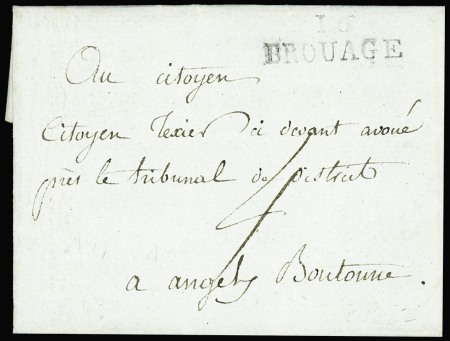 16
BROUAGE
Au citoyen
Citoyen Texier ci devant avoué
près le tribunal de district
4
a angely Boutonne.